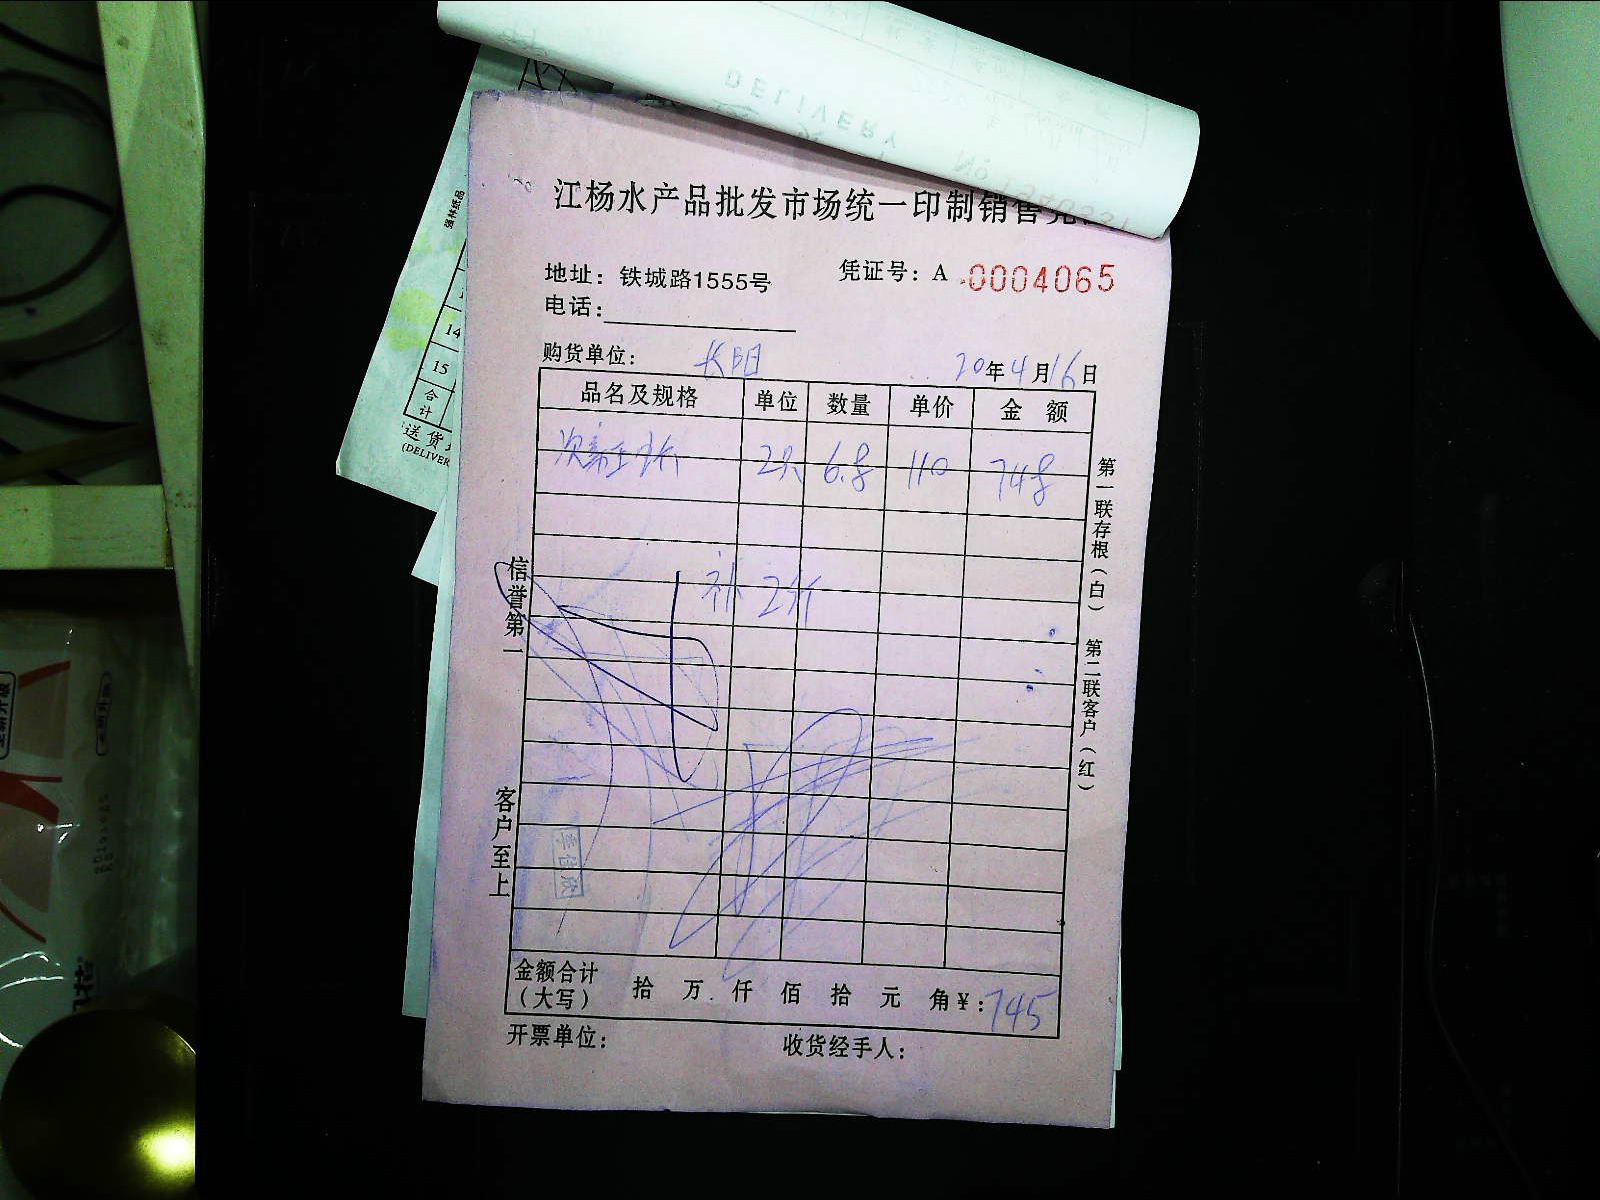 江杨水产品批发市场统一印制销售
地址：铁城路1555号
凭证号：A 0004065
电话：
购货单位： 长阳
20年4月16日
品名及规格 单位 数量 单价 金额
2只 6.8 110 748
补 2斤
信誉第一
客户至上
第一联存根（白） 第二联客户（红）
金额合计（大写） 拾 万 仟 佰 拾 元 角 ¥：745
开票单位： 收货经手人：
DELIVERY
No
强林纸品
14
15
合计
送货
(DELIVER